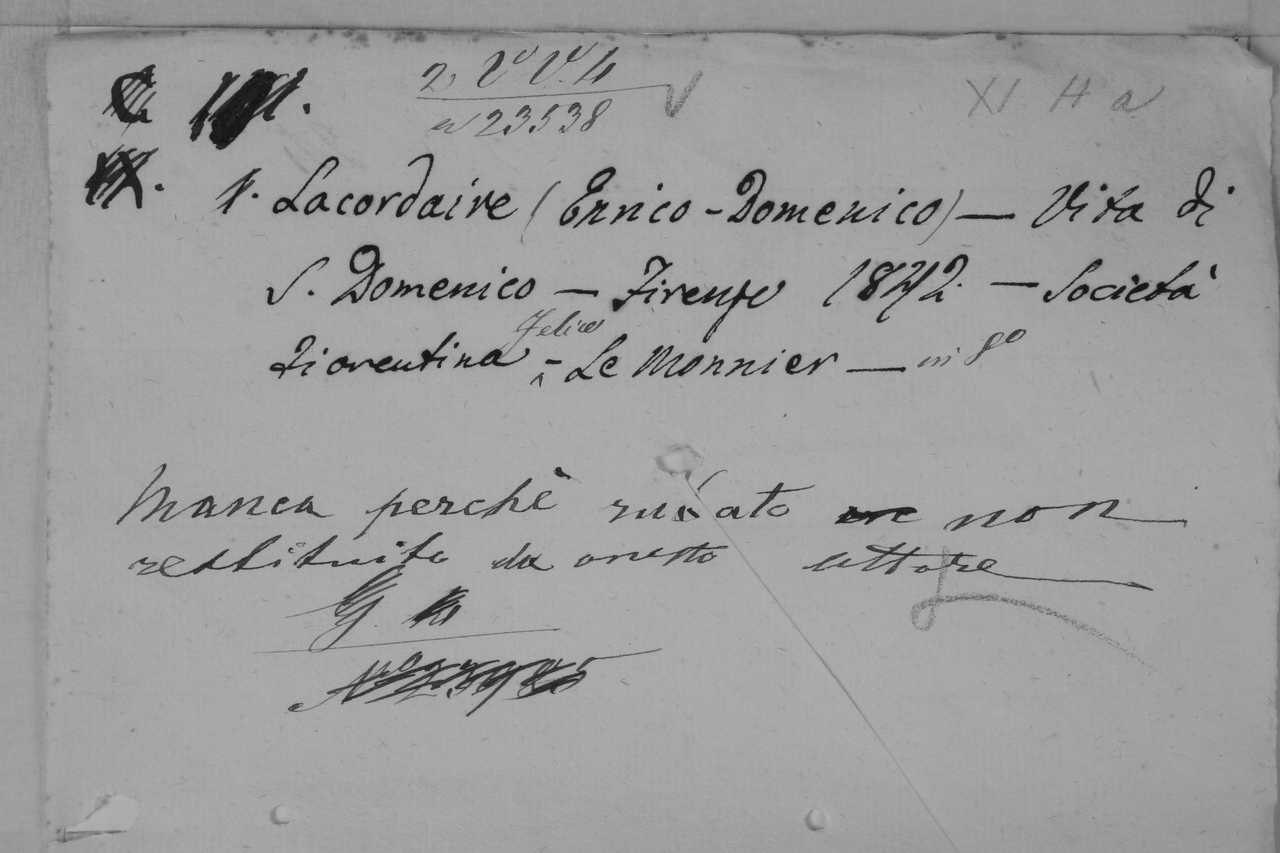 XI H a
n 23538
1. Lacordaire (Enrico-Domenico) — Vita di
S. Domenico — Firenze 1842. — Società
Fiorentina - Felice Le Monnier — in 8°
Manca perchè rubato non
restituito da onesto lettore
G.